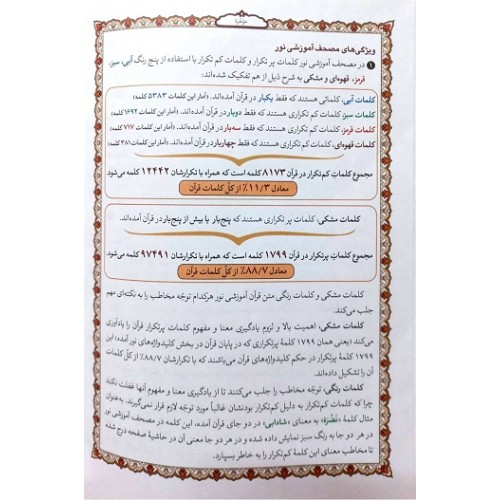 مؤخرة
ویژگی‌های مصحف آموزشی نور
۱ در مصحف آموزشی نور کلمات پر تکرار و کلمات کم تکرار با استفاده از پنج رنگ آبی، سبز،
قرمز، قهوه‌ای و مشکی به شرح ذیل از هم تفکیک شده‌اند:
کلمات آبی، کلماتی هستند که فقط یکبار در قرآن آمده‌اند. (آمار این کلمات ۵۳۸۳ کلمه)
کلمات سبز، کلمات کم تکراری هستند که فقط دوبار در قرآن آمده‌اند. (آمار این کلمات ۱۶۹۲ کلمه)
کلمات قرمز، کلمات کم تکراری هستند که فقط سه‌بار در قرآن آمده‌اند. (آمار این کلمات ۷۱۷ کلمه)
کلمات قهوه‌ای، کلمات کم تکراری هستند که فقط چهاربار در قرآن آمده‌اند. (آمار این کلمات ۳۸۱ کلمه)
مجموع کلمات کم‌تکرار در قرآن ۸۱۷۳ کلمه است که همراه با تکرارشان ۱۲۴۴۲ کلمه می‌شود.
معادل ۱۱/۳٪ از کلّ کلمات قرآن
کلمات مشکی، کلمات پر تکراری هستند که پنج‌بار یا بیش از پنج‌بار در قرآن آمده‌اند.
مجموع کلمات پرتکرار در قرآن ۱۷۹۹ کلمه است که همراه با تکرارشان ۹۷۴۹۱ کلمه می‌شود.
معادل ۸۸/۷٪ از کلّ کلمات قرآن
کلمات مشکی و کلمات رنگی متن قرآن آموزشی نور هرکدام توجّه مخاطب را به نکته‌ای مهم
جلب می‌کند.
کلمات مشکی، اهمیت بالا و لزوم یادگیری معنا و مفهوم کلمات پرتکرار قرآن را یادآوری
می‌کند (یعنی همان ۱۷۹۹ کلمهٔ پرتکراری که در پایان قرآن در بخش کلیدواژه‌های نور آمده) این
۱۷۹۹ کلمهٔ پرتکرار در حکم کلیدواژه‌های قرآن می‌باشند که با تکرارشان ۸۸/۷٪ از کلّ کلمات
آن را تشکیل داده‌اند.
کلمات رنگی، توجّه مخاطب را جلب می‌کنند تا از یادگیری معنا و مفهوم آنها غفلت نکند
چرا که کلمات کم‌تکرار به دلیل کم‌تکرار بودنشان غالباً مورد توجّه لازم قرار نمی‌گیرند. به‌عنوان
مثال کلمهٔ «نَضْرَةَ» به معنای «شادابی» در دو جای قرآن آمده، این کلمه در مصحف آموزشی نور
در هر دو جا به رنگ سبز نمایش داده شده و در هر دو جا معنی آن در حاشیهٔ صفحه درج شده
تا مخاطب معنای این کلمهٔ کم‌تکرار را به خاطر بسپارد.